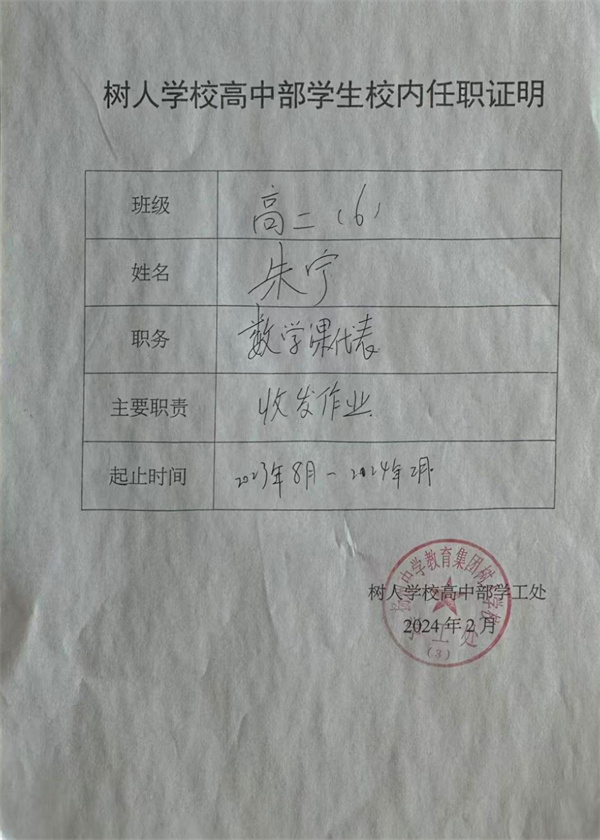 树人学校高中部学生校内任职证明
班级 高二（6）
姓名 朱宁
职务 数学课代表
主要职责 收发作业
起止时间 2023年8月－2024年2月
树人学校高中部学工处
2024年2月
中学教育集团树人学校
学工处
（3）